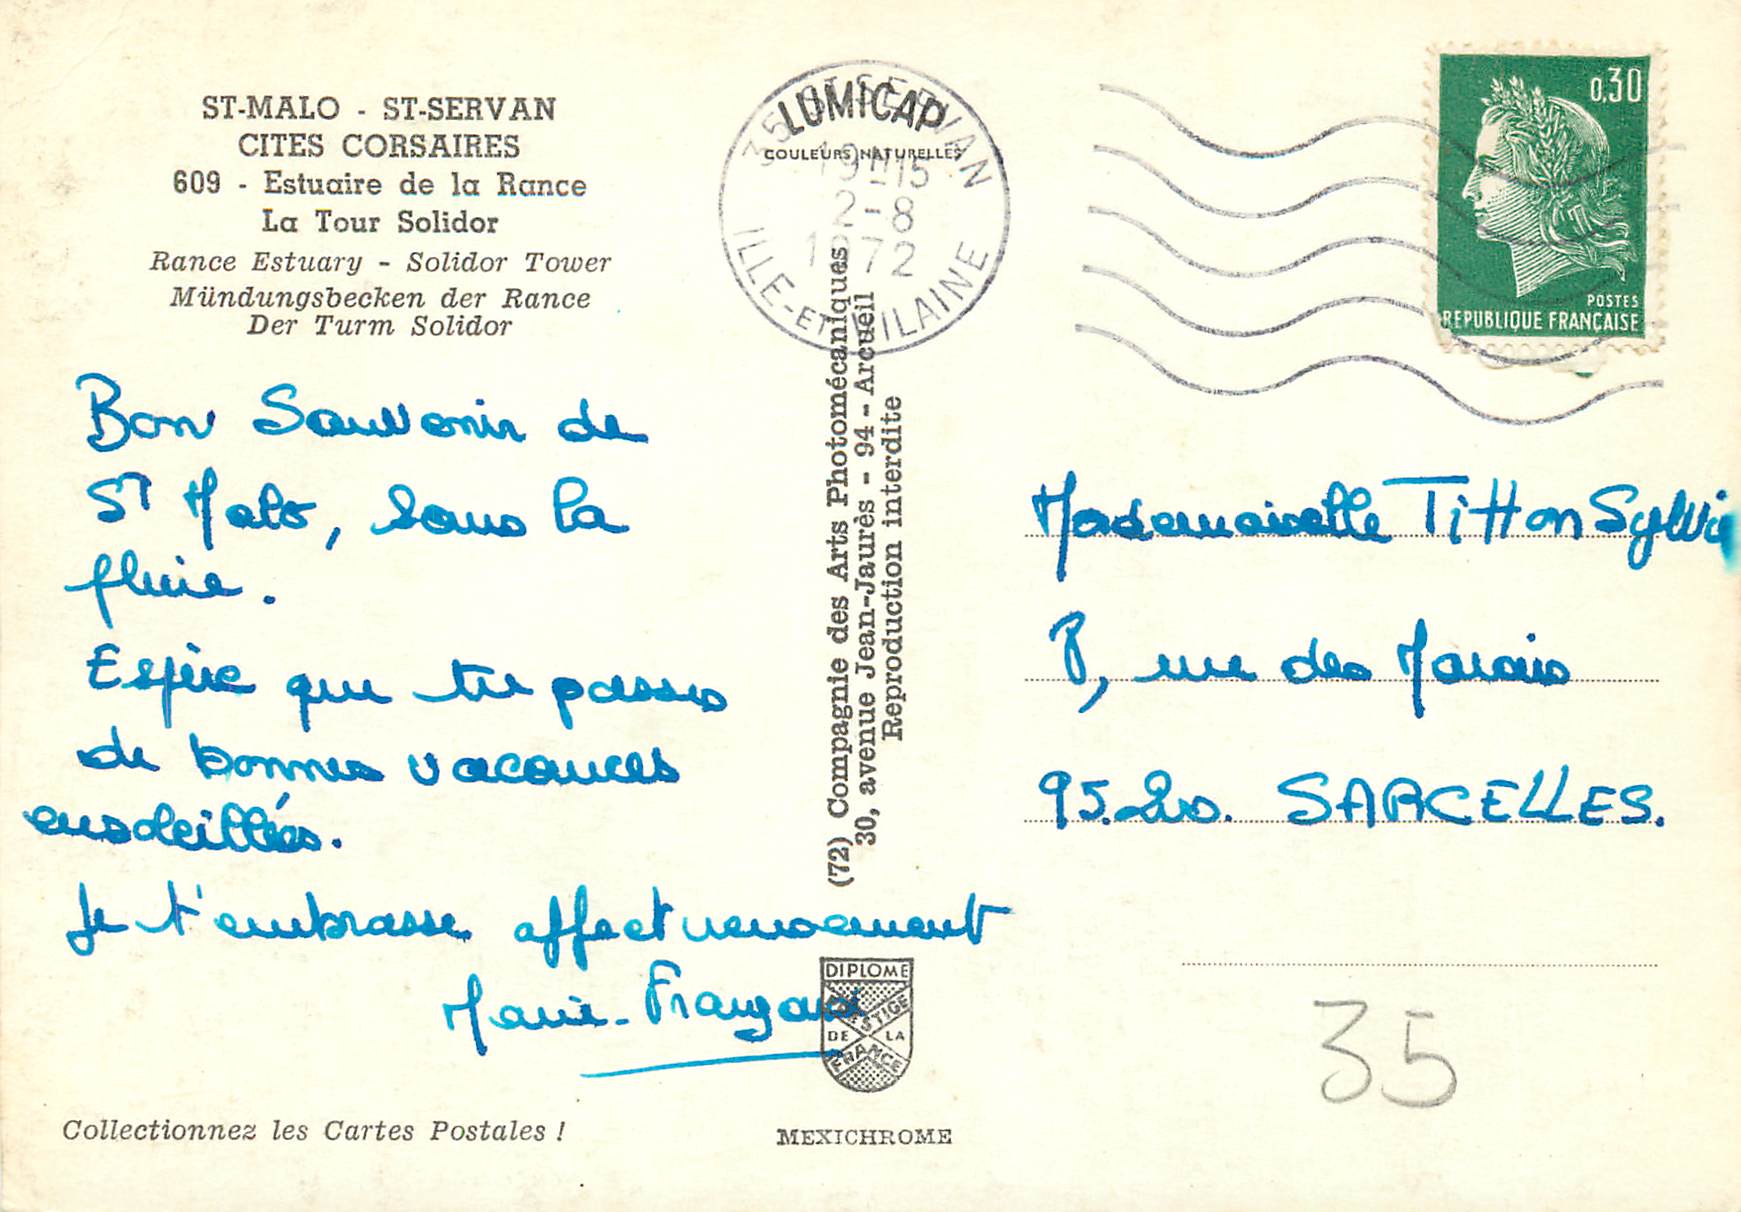 ST-MALO - ST-SERVAN
CITES CORSAIRES
609 - Estuaire de la Rance
La Tour Solidor
Rance Estuary - Solidor Tower
Mündungsbecken der Rance
Der Turm Solidor
Bon Souvenir de
St Malo, sous la
pluie.
Espère que tu passes
de bonnes vacances
ensoleillées.
Je t'embrasse affectueusement
Marie-Françoise
Collectionnez les Cartes Postales !
LUMICAP
COULEURS NATURELLES
35 ST-SERVAN
19H15
2-8
1972
ILLE-ET-VILAINE
(72) Compagnie des Arts Photomécaniques
30, avenue Jean-Jaurès - 94 - Arcueil
Reproduction interdite
DIPLOME
PRESTIGE
DE LA
FRANCE
MEXICHROME
0,30
POSTES
REPUBLIQUE FRANÇAISE
Mademoiselle Titton Sylvie
8, rue des Marais
95.20. SARCELLES.
35